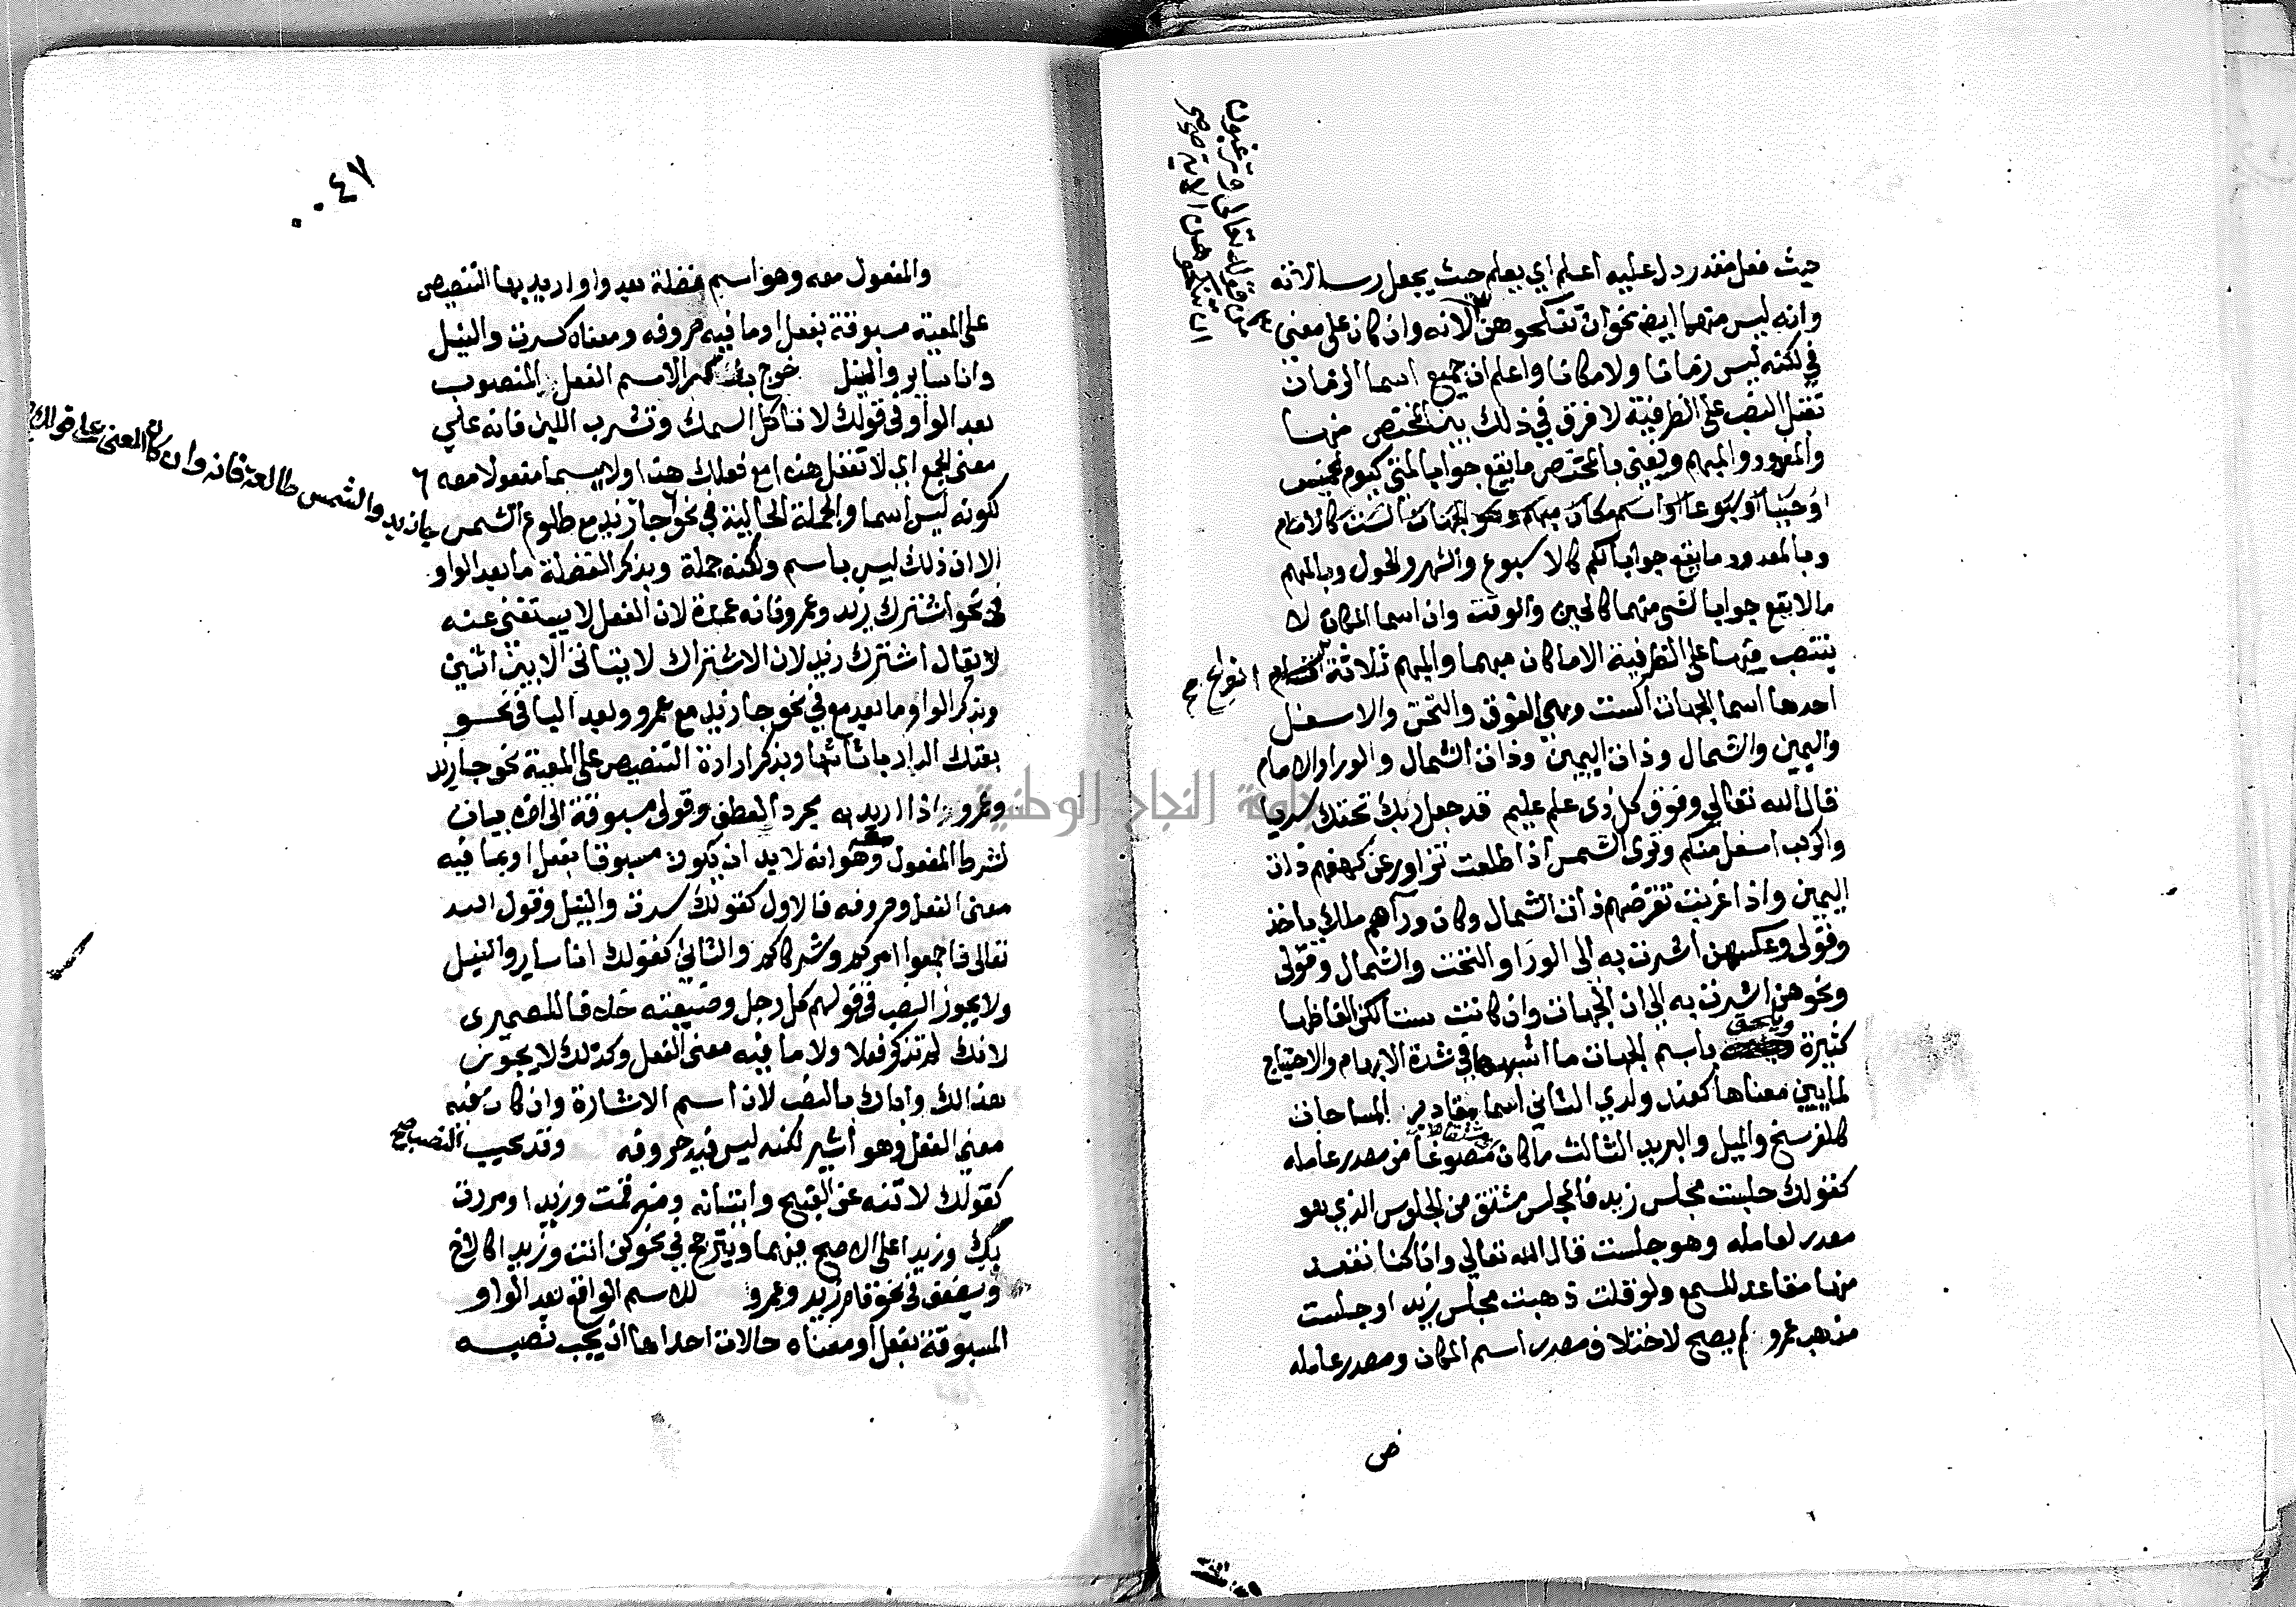 حيث فعل مقدر دل عليه اعلم اي يعلم حيث يجعل رسالاته
وانه ليس منهما ايض نحو ان تنكحوهن لانه وان كان على معنى
في لكنه ليس زمانا ولا مكانا واعلم ان جميع اسما الزمان
تقبل النصب على الظرفية لا فرق في ذلك بين المختص منها
والمعدود والمبهم ويعني بالمختص ما يقع جوابا لمتى كيوم الخميس
او اسم مكان مبهم وهو الجهات الست كالامام
وبالمعدود ما يقع جوابا لكم كالاسبوع والشهر والحول وبالمبهم
ما لا يقع جوابا لشي منهما كالحين والوقت وان اسما المكان لا
ينتصب منها على الظرفية الا ما كان مبهما والمبهم ثلاثة انواع صح
احدها اسما الجهات الست وهي الفوق والتحت والاسفل
واليمين والشمال وذات اليمين وذات الشمال والورا والامام
قال الله تعالى وفوق كل ذي علم عليم قد جعل ربك تحتك سريا
والركب اسفل منكم وترى الشمس اذا طلعت تزاور عن كهفهم ذات
اليمين واذا غربت تقرضهم ذات الشمال وكان ورآهم ملك ياخذ
وقولي وعكسهن اشرت به الى الورا والتحت والشمال وقولي
ونحوهن اشرت به الى ان الجهات وان كانت ستا لكن الفاظها
كثيرة ويلحق باسم الجهات ما اشبهها في شدة الابهام والاحتياج
لما يبين معناها كعند ولدي الثاني اسما مقادير المساحات
كالفرسخ والميل والبريد الثالث ما كان مصوغا من مصدر عامله
كقولك جلست مجلس زيد فالمجلس مشتق من الجلوس الذي هو
مصدر لعامله وهو جلست قال الله تعالى وانا كنا نقعد
منها مقاعد للسمع ولو قلت ذهبت مجلس زيد او جلست
مذهب عمرو لم يصح لاختلاف مصدر اسم المكان ومصدر عامله
قوله تعالى وترغبون
ان تنكحوهن الاية صح
٠٠٤٧
والمفعول معه وهو اسم فضلة بعد واو اريد بها التنصيص
على المعية مسبوقة بفعل او ما فيه حروفه ومعناه كسرت والنيل
وانا ساير والنيل خرج بذكر الاسم الفعل المنصوب
بعد الواو في قولك لا تاكل السمك وتشرب اللبن فانه على
معنى الجمع اي لا تفعل هذا مع فعلك هذا ولا يسما مفعولا معه
لكونه ليس اسما والجملة الحالية في نحو جا زيد مع طلوع الشمس
جا زيد والشمس طالعة فانه وان كان المعنى على قولك
الا ان ذلك ليس باسم ولكنه جملة وبذكر الفضلة ما بعد الواو
في نحو اشترك زيد وعمرو فانه عمدة لان الفعل لا يستغنى عنه
لا يقال اشترك زيد لان الاشتراك لا يتاتى الا بين اثنين
وبذكر الواو ما بعد مع في نحو جا زيد مع عمرو وبعد البا في نحو
بعتك الدار باثاثها وبذكر ارادة التنصيص على المعية نحو جا زيد
وعمرو اذا اريد به مجرد العطف وقولي مسبوقة الى اخره بيان
لشرط المفعول معه وهو انه لا بد ان يكون مسبوقا بفعل او بما فيه
معنى الفعل وحروفه فالاول كقولك سرت والنيل وقول الله
تعالى فاجمعوا امركم وشركاكم والثاني كقولك انا ساير والنيل
ولا يجوز النصب في قولهم كل رجل وضيعته خلافا للصيمري
لانك لم تذكر فعلا ولا ما فيه معنى الفعل وكذلك لا يجوز
هذا لك واباك بالنصب لان اسم الاشارة وان كان فيه
معنى الفعل وهو اشير لكنه ليس فيه حروفه وقد يجب النصب صح
كقولك لا تنه عن القبيح واتيانه ومنه قمت وزيدا ومررت
بك وزيدا على الاصح فيهما ويترجح في نحو كن انت وزيدا كالاخ
ويضعف في نحو قام زيد وعمرو للاسم الواقع بعد الواو
المسبوقة بفعل او معناه حالات احداها ان يجب نصبه
ص
جامعة النجاح الوطنية